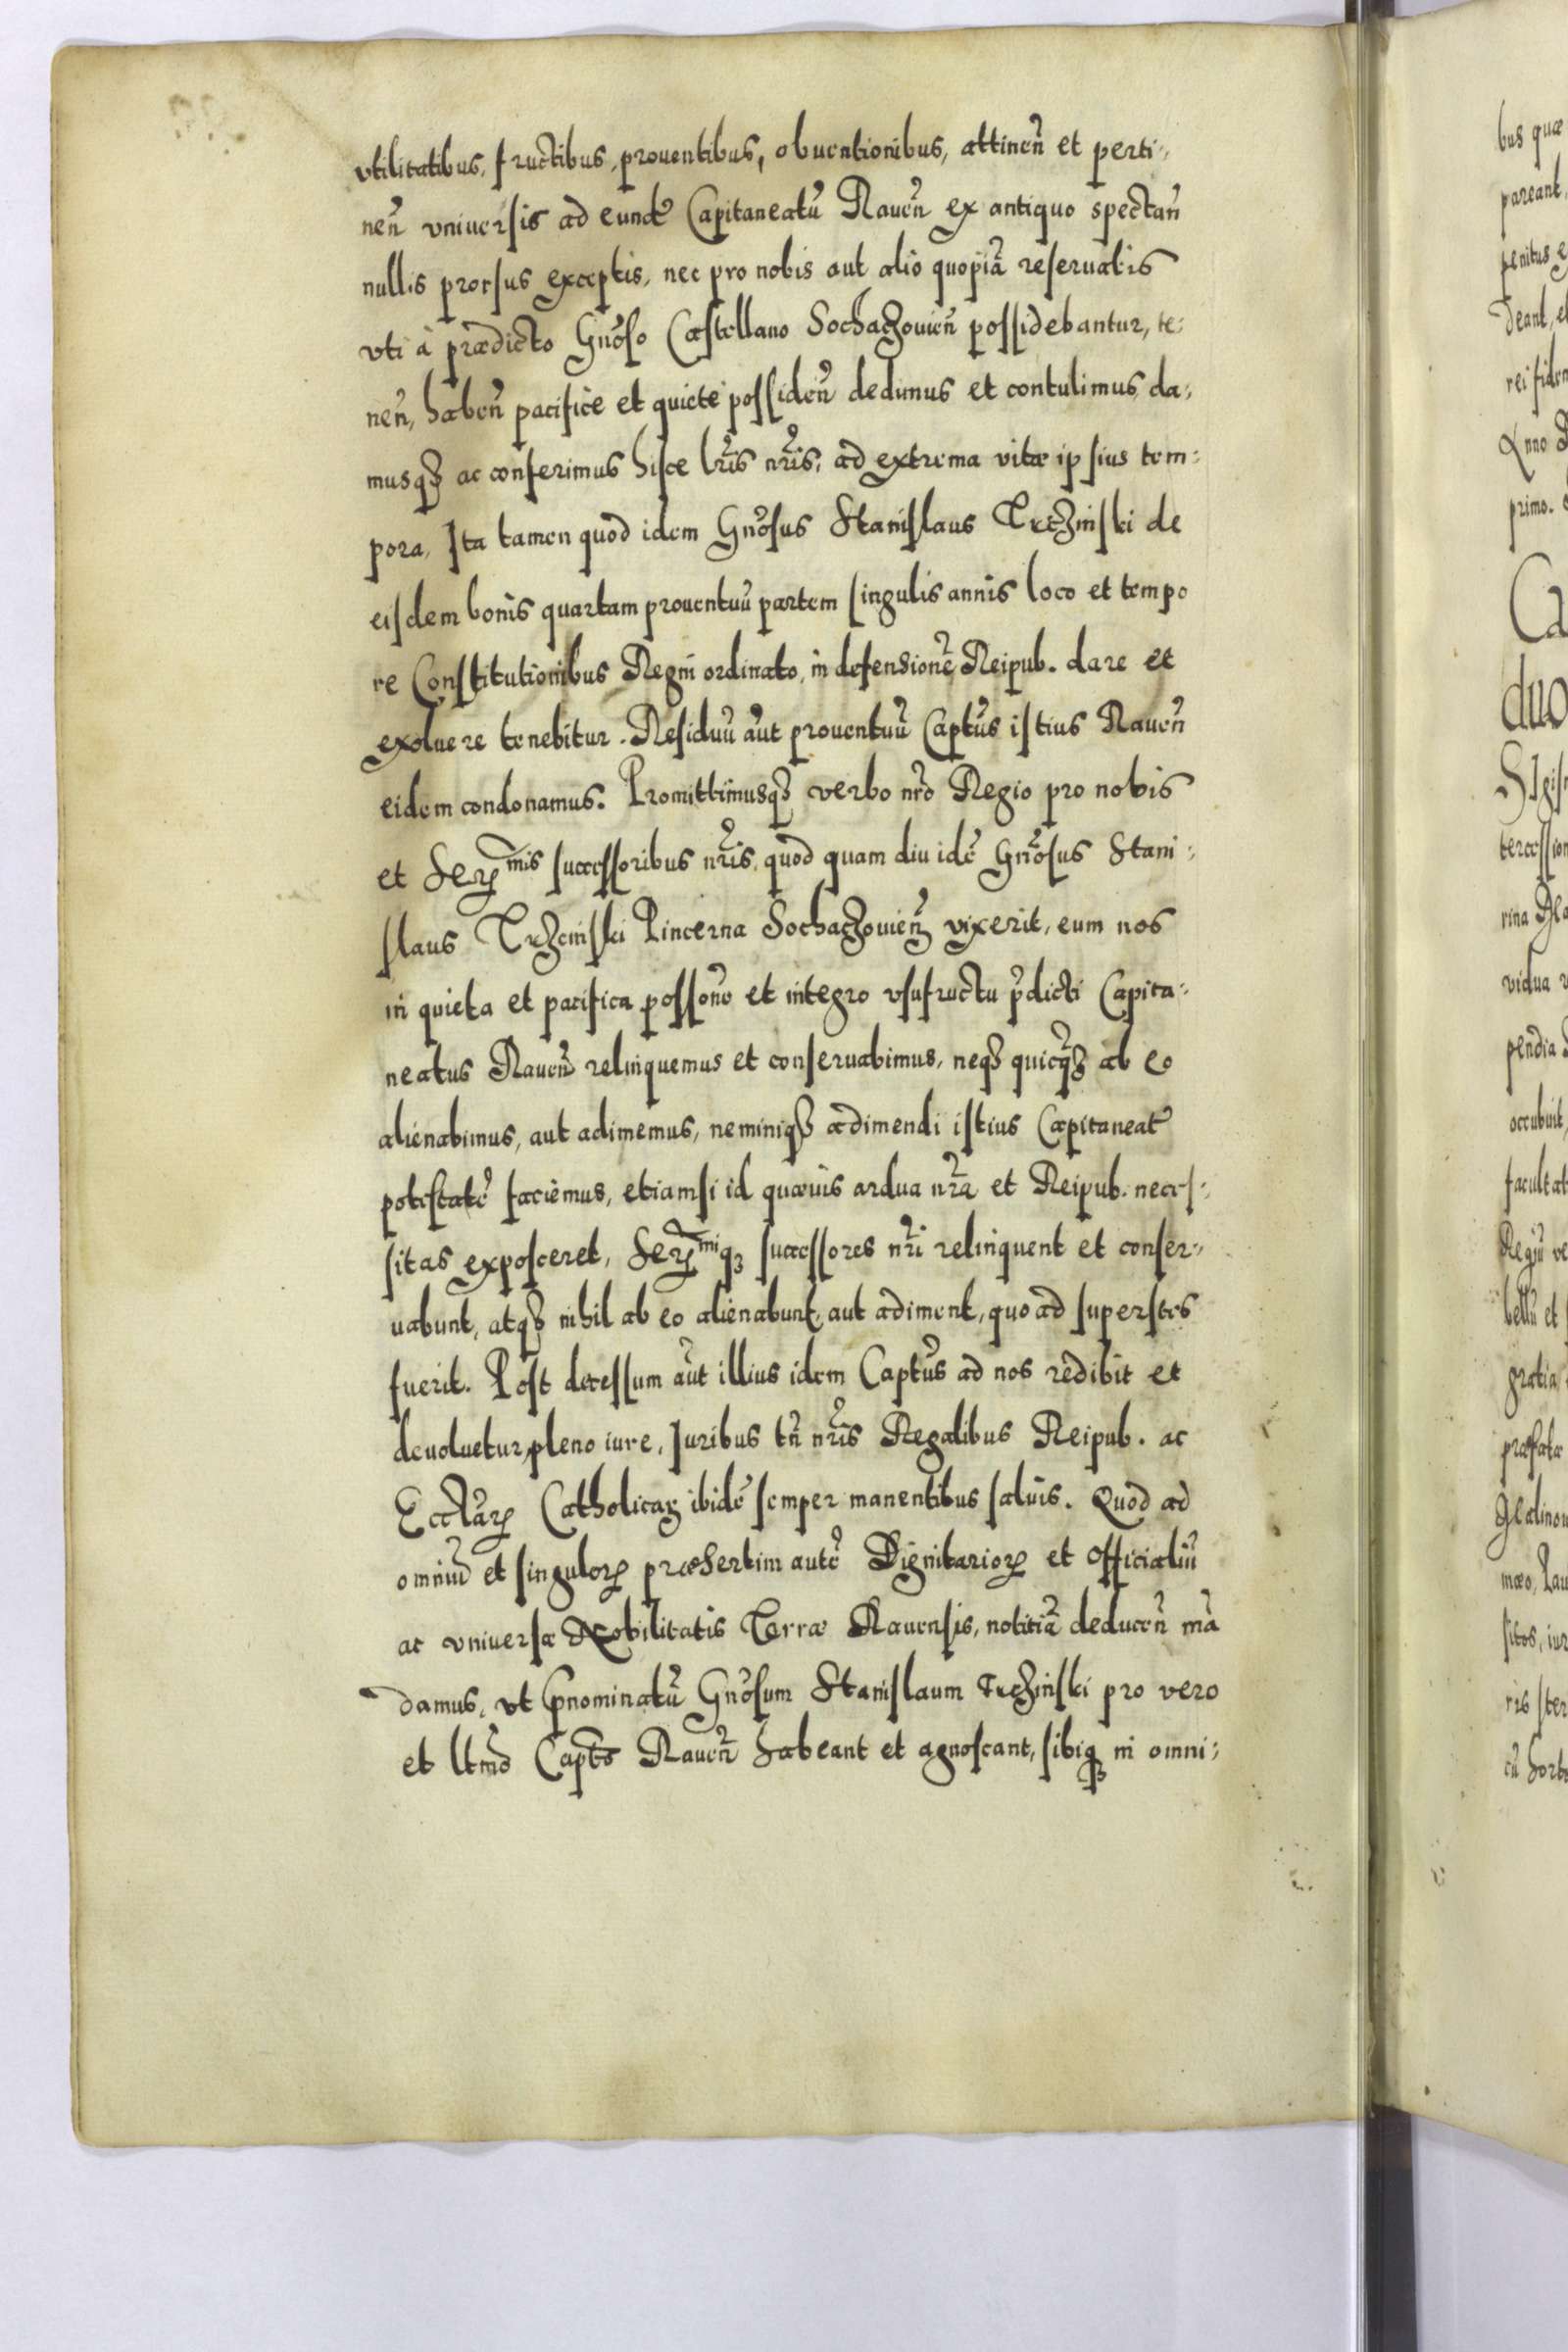 vtilitatibus, fructibus, prouentibus, obuentionibus, attineñ et perti-
neñ vniuersis ad eund̃ Capitaneatũ Raueñ ex antiquo spectañ
nullis prorsus exceptis, nec pro nobis aut alio quopiã reseruatis
vti à prædicto Gñoso Castellano Sochaczouieñ possidebantur, te-
neñ, habeñ pacifice et quiete possideñ dedimus et contulimus da-
musqȝ ac conferimus hisce lr̃is nr̃is, ad extrema vitæ ipsius tem-
pora, Ita tamen quod idem Gñosus Stanislaus Trczinski de
eisdem bonis quartam prouentuũ partem singulis annis loco et tempo
re Constitutionibus Regni ordinato, in defensionẽ Reipub. dare et
exoluere tenebitur. Residuũ aũt prouentuũ Captũs istius Raueñ
eidem condonamus. Promittimusqȝ verbo nr̃o Regio pro nobis
et Serꝫmis successoribus nr̃is, quod quam diu idẽ Gñosus Stani-
slaus Trzcinski Pincerna Sochaczouieñ vixerit, eum nos
in quieta et pacifica possoñe et integro vsufructu p̃dicti Capita-
neatus Raueñ relinquemus et conseruabimus, neqȝ quicqȝ ab eo
alienabimus, aut adimemus, neminiqȝ adimendi istius Capitaneat̃
potestatẽ faciemus, etiamsi id quæuis ardua nr̃a et Reipub. neces-
sitas exposceret, Serꝫmiqȝ successores nr̃i relinquent et conser-
uabunt, atqȝ nihil ab eo alienabunt, aut adiment, quoad superstes
fuerit. Post decessum aũt illius idem Captũs ad nos redibit et
deuoluetur pleno iure, Iuribus tñ nr̃is Regalibus Reipub. ac
Ecclãrꝫ Catholicarꝫ ibidẽ semper manentibus saluis. Quod ad
omniũ et singulorꝫ præsertim autẽ Dignitariorꝫ et Officialiũ
ac vniuersæ Nobilitatis Terræ Rauensis, notitiã deduceñ mã
damus, vt p̃nominatũ Gñosum Stanislaum Trczinski pro vero
et lt̃mo Capt̃o Raueñ habeant et agnoscant, sibiqȝ in omni-